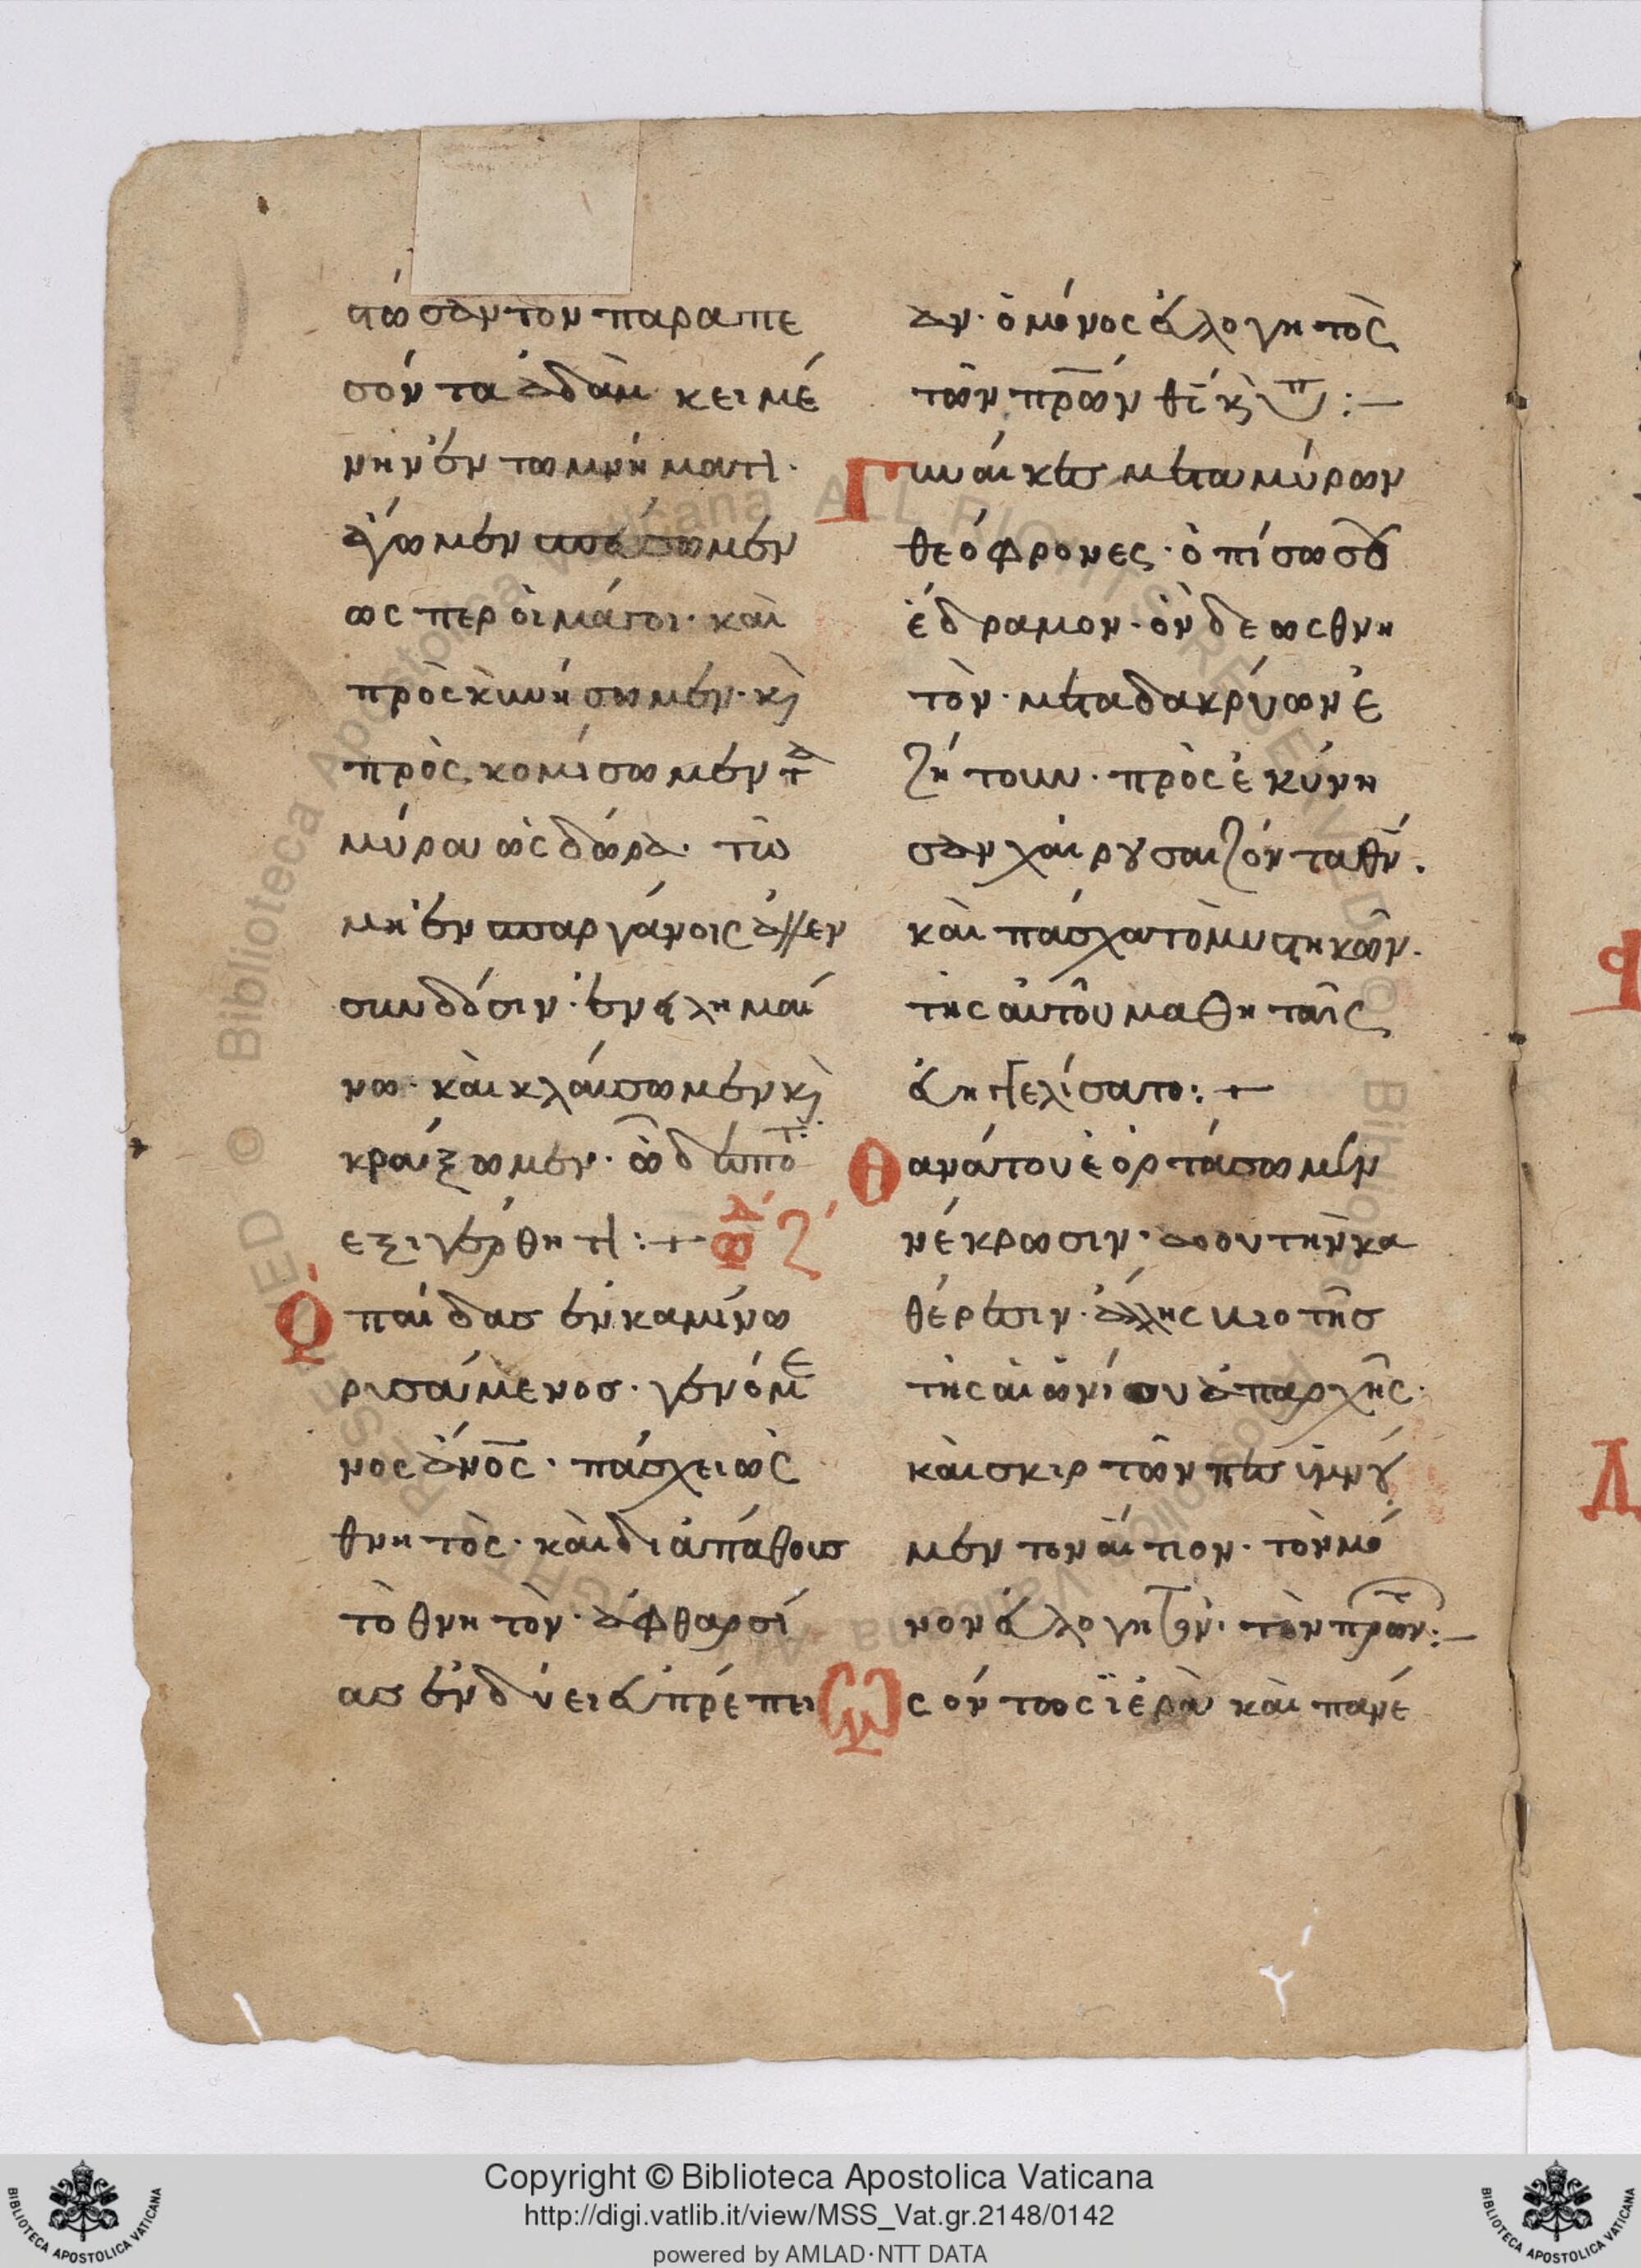 στώσαν τον παραπε
σόντα ἀδὰμ κειμέ
νην ἐν τω μνήματι·
ἄγωμεν σπεύσωμεν
ως περ οἱ μάγοι· καὶ
πρὸσκυνήσωμεν· κὶ
πρὸς κομίσωμεν τὰ
μύρα ὡς δώρα· τῶ
μὴ ἐν σπαργάνοις ἀλλ εν
συνδόσιν· ἐνειλημαί
νω· καὶ κλαύσωμεν κὶ
κράξωμεν· ὦ δέσποτ
εξιγέρθητι :+ ᾠΔ ζ
Ὁ παίδας ἐν καμίνω
ρυσάμενοσ· γενόμε
νος ἄνος· πάσχει ὡς
θνητὸς· καὶ διὰ πάθους
τὸ θνητὸν· ἀφθαρσί
ας ἐνδύει εὐπρέπει
αν· ὁ μόνος εὐλογητὸς
τῶν πρων θς κὶ ὑπ :—
Γυναίκες μετα μύρων
θεόφρονες· ὀπίσω σου
ἔδραμον· ὃν δε ως θνη
τὸν· μετα δακρύων ἐ
ζήτουν· πρὸσἐκύνη
σαν χαίρουσαι ζόντα θν·
καὶ πάσχα τὸ μυστηκῶν·
τῆς αὐτοῦ μαθηταῖς
εὐηγγελίσατο :+
Θανάτου ἑορτάσωμεν
νέκρωσιν· αδου τὴν κα
θέρεσιν· ἄλλης βιοτῆσ
τῆς αἰωνίου ἀπαρχῆς·
καὶ σκιρτῶντες ὑμνοῦ
μεν τον αἴτιον· τὸν μό
νον εὐλογητόν· τὸν πρων :—
Ὡς όντως ϊἑρὰ καὶ πανέ
Copyright © Biblioteca Apostolica Vaticana
http://digi.vatlib.it/view/MSS_Vat.gr.2148/0142
powered by AMLAD·NTT DATA
BIBLIOTECA APOSTOLICA VATICANA
BIBLIOTECA APOSTOLICA VATICANA